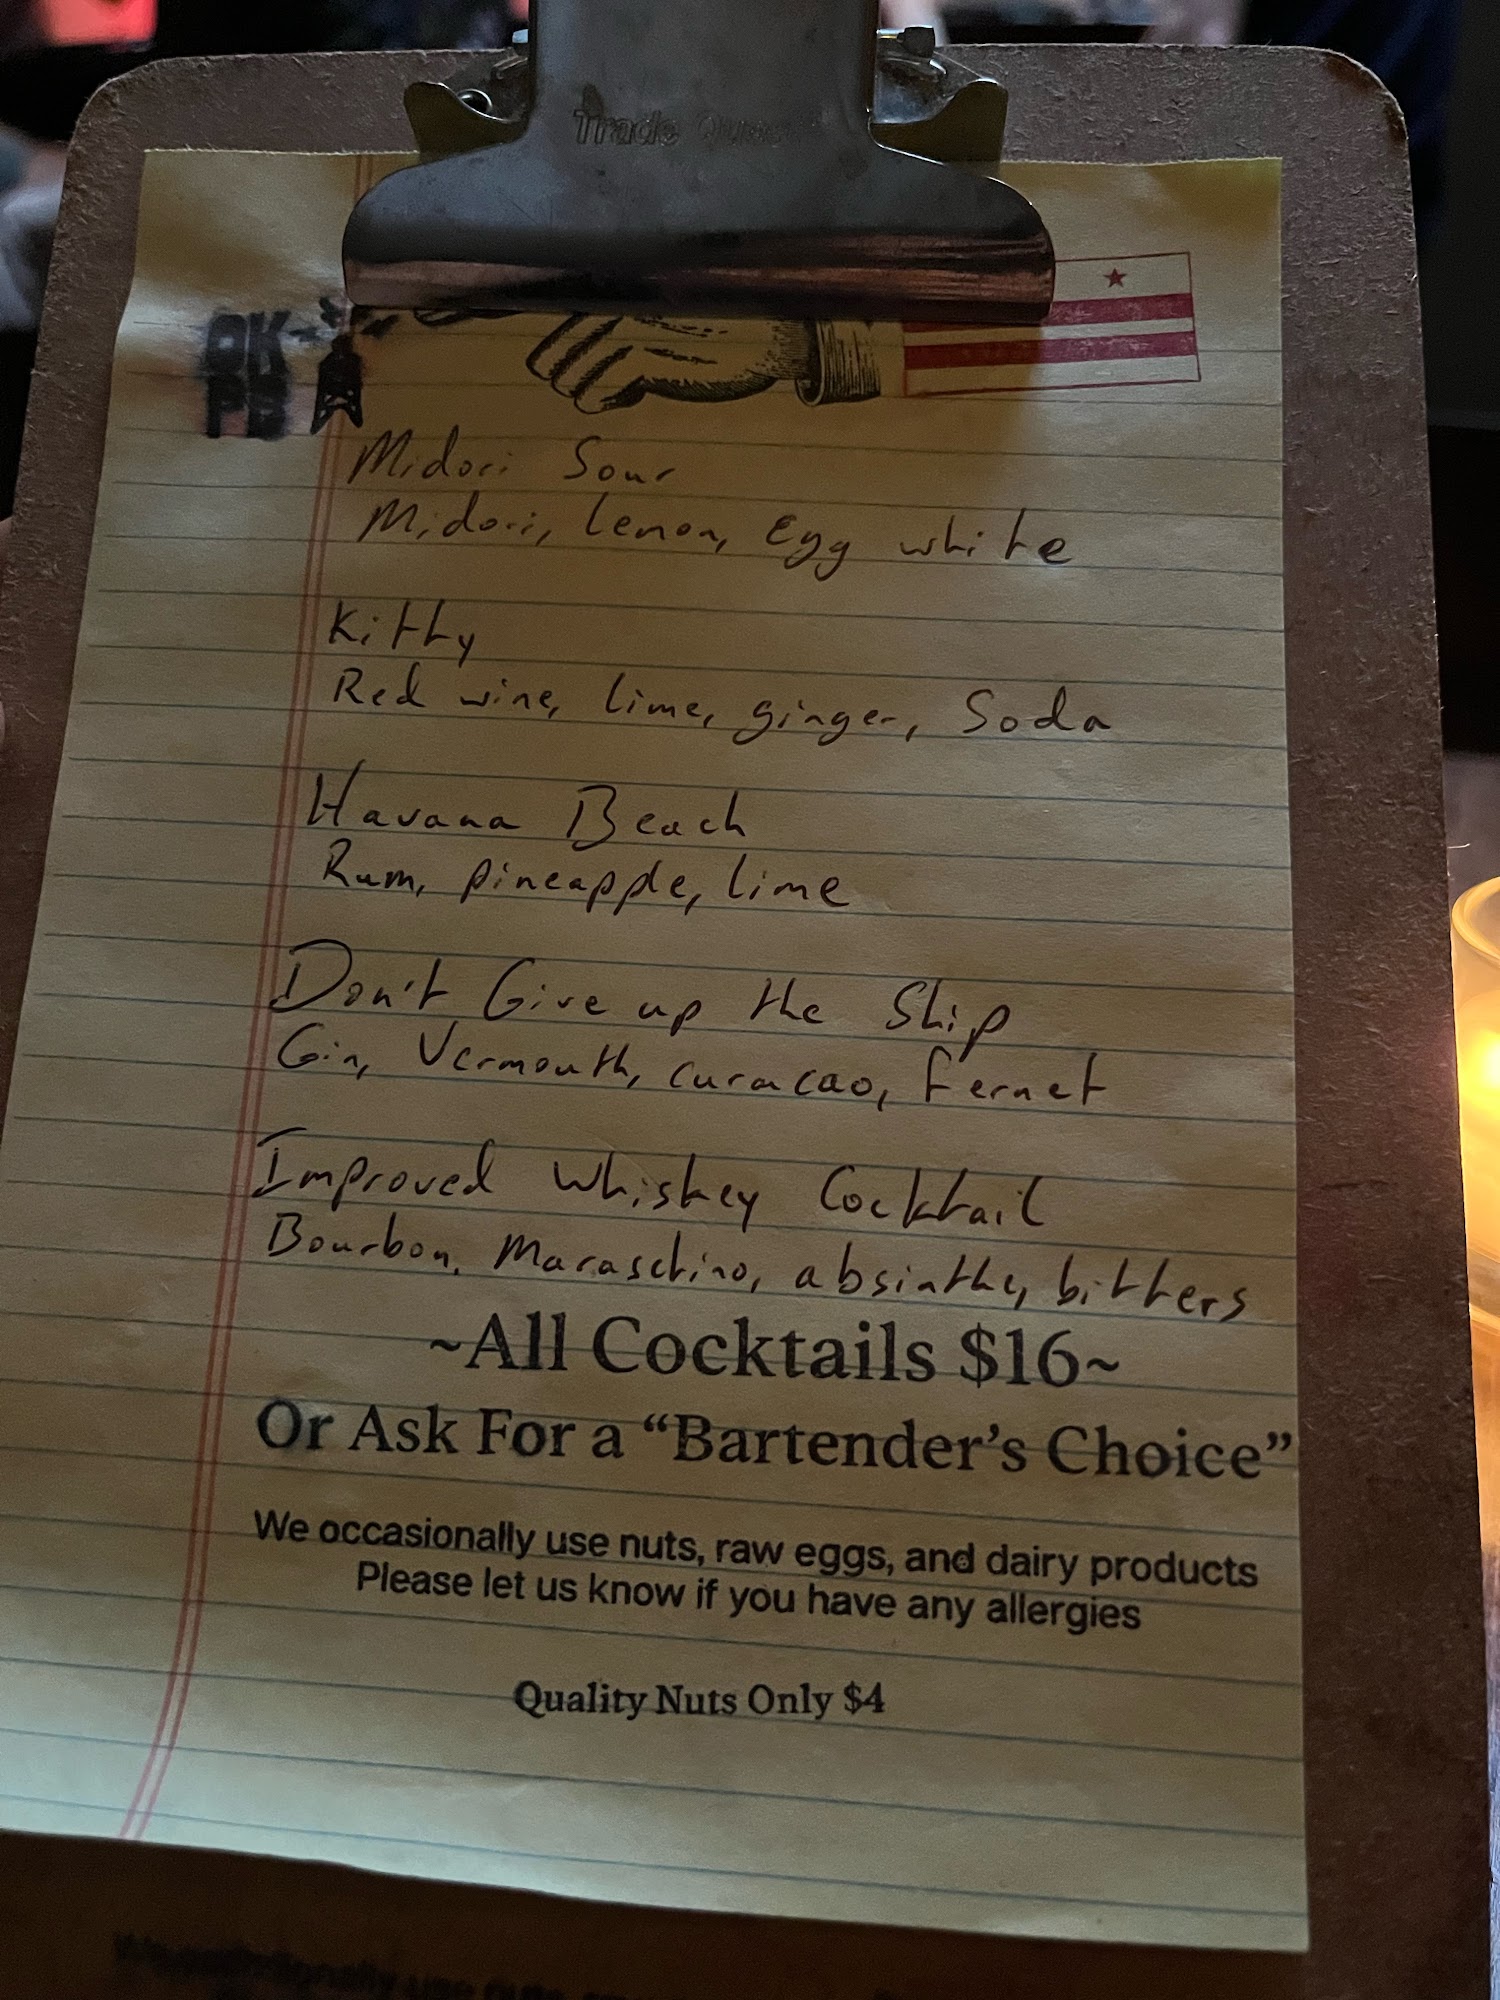 Trade
OK
PB
Midori Sour
Midori, lemon, Egg white
Kitty
Red wine, lime, ginger, Soda
Havana Beach
Rum, pineapple, lime
Don't Give up the Ship
Gin, Vermouth, curacao, Fernet
Improved Whiskey Cocktail
Bourbon, Maraschino, absinthe, bitters
~All Cocktails $16~
Or Ask For a “Bartender’s Choice”
We occasionally use nuts, raw eggs, and dairy products
Please let us know if you have any allergies
Quality Nuts Only $4